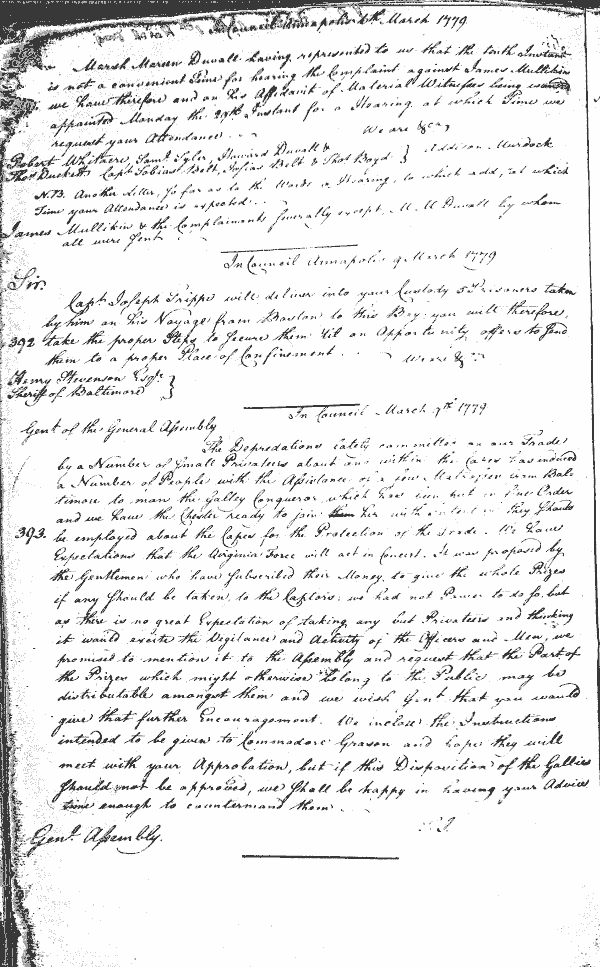 In Council Annapolis 6th March 1779
Marsh Mareen Duvall having represented to us that the tenth Instant
is not a convenient Time for hearing the Complaint against James Mullikin
we have therefore and on his Affidavit of Material Witnesses being wanted
appointed Monday the 29th Instant for a Hearing at which Time we
request your Attendance
We are &ca
Robert Whitacre, Saml Tyler, Howard Duvall &
Thos Duckett Capt Tobias Belt, Josias Belt & Thos Boyd } Addison Murdock
N.B. Another Letter, so far as to the Words a Hearing, to which add, at which
Time your Attendance is expected
James Mullikin & the Complainants generally except M. M Duvall by whom
all were sent
In Council Annapolis 9 March 1779
Sir.
Capt Joseph Trippe will deliver into your Custody 5 Prisoners taken
by him on his Voyage from Boston to this Bay, you will therefore,
392 take the proper Steps to secure them til an Opportunity offers to send
them to a proper Place of Confinement
We are &ca
Henry Stevenson Esqr
Sheriff of Baltimore }
In Council March 9th 1779
Gent of the General Assembly
The Depredations lately committed on our Trade
by a Number of small Privateers about and within the Capes has induced
a Number of People with the Assistance of a few from Balt
timore to man the Galley Conqueror which has been put in fine Order
and we have the Chester ready to join them her with intent they should
393. be employed about the Capes for the Protection of the Trade. We have
Expectations that the Virginia Force will act in Concert. It was proposed by
the Gentlemen who have subscribed their Money to give the whole Prizes
if any should be taken to the Captors; we had not Power to do so, but
as there is no great Expectation of taking any but Privateers and thinking
it would excite the Vigilance and Activity of the Officers and Men, we
promised to mention it to the Assembly and request that the Part of
the Prizes which might otherwise belong to the Public may be
distributable amongst them and we wish Gent that you would
give that further Encouragement. We inclose the Instructions
intended to be given to Commodore Grason and hope they will
meet with your Approbation, but if this Disposition of the Gallies
should not be approved, we shall be happy in having your Advice
time enough to countermand them
Genl Assembly.